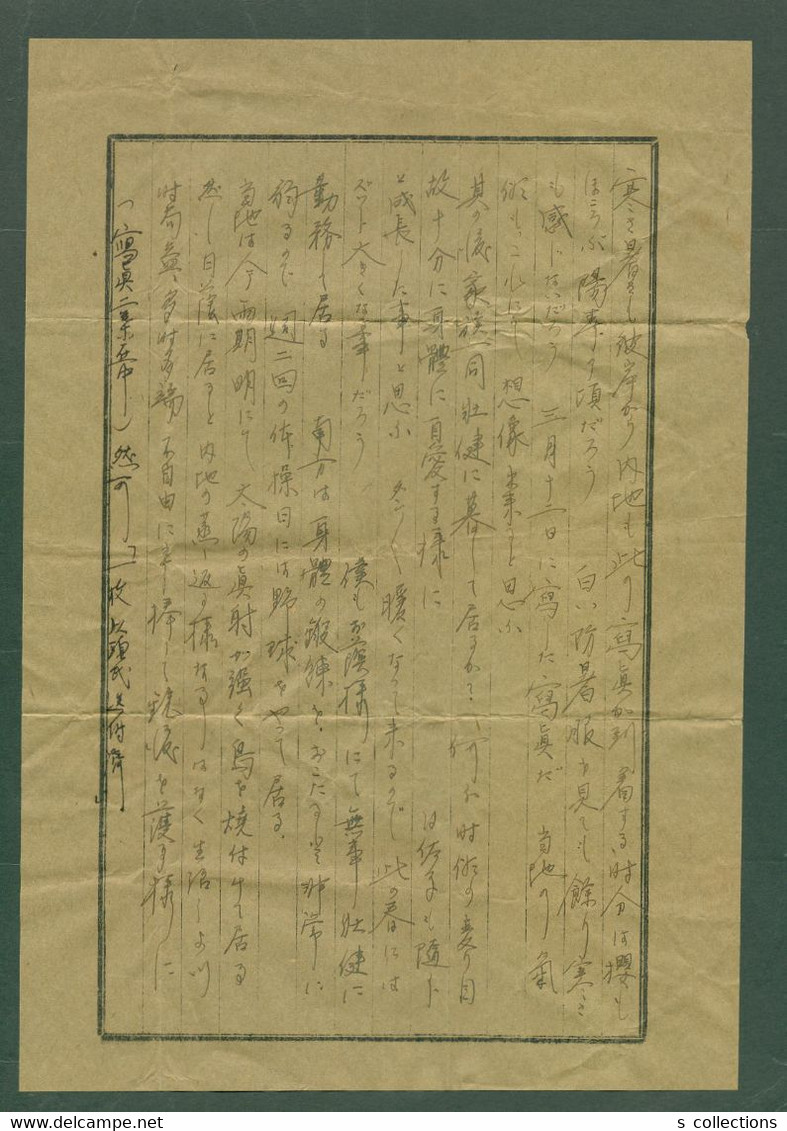 寒さ暑さも彼岸から内地も此の寫眞が到着する時分は櫻も
ほころぶ陽春の頃だろう　白い防暑服を見ても餘り寒さ
も感じないだろう　三月十一日に寫した寫眞だ　当地の氣
候もこれにて想像出来ると思ふ
其の後家族一同壮健に暮して居るか？　何に时候の変り目
故十分に身體に自愛する様に　も随分
と成長した事と思ふ　暖くなって来るので此の春には
ズット大きくなる事だろう　僕もお蔭様にて無事壮健に
勤務して居る　南方は身體の鍛錬をおこたると非常に
弱るので週二回の体操日には野球をやって居る.
当地は今雨期明にて太陽の直射が強く鳥を焼付けて居る
然し日蔭に居ると内地の蒸し返る様なる事はなく生活しよい
时局益々多时多端不自由に　捧して銃後を護る様に
（寫眞二葉　）　然　送付済
s collections